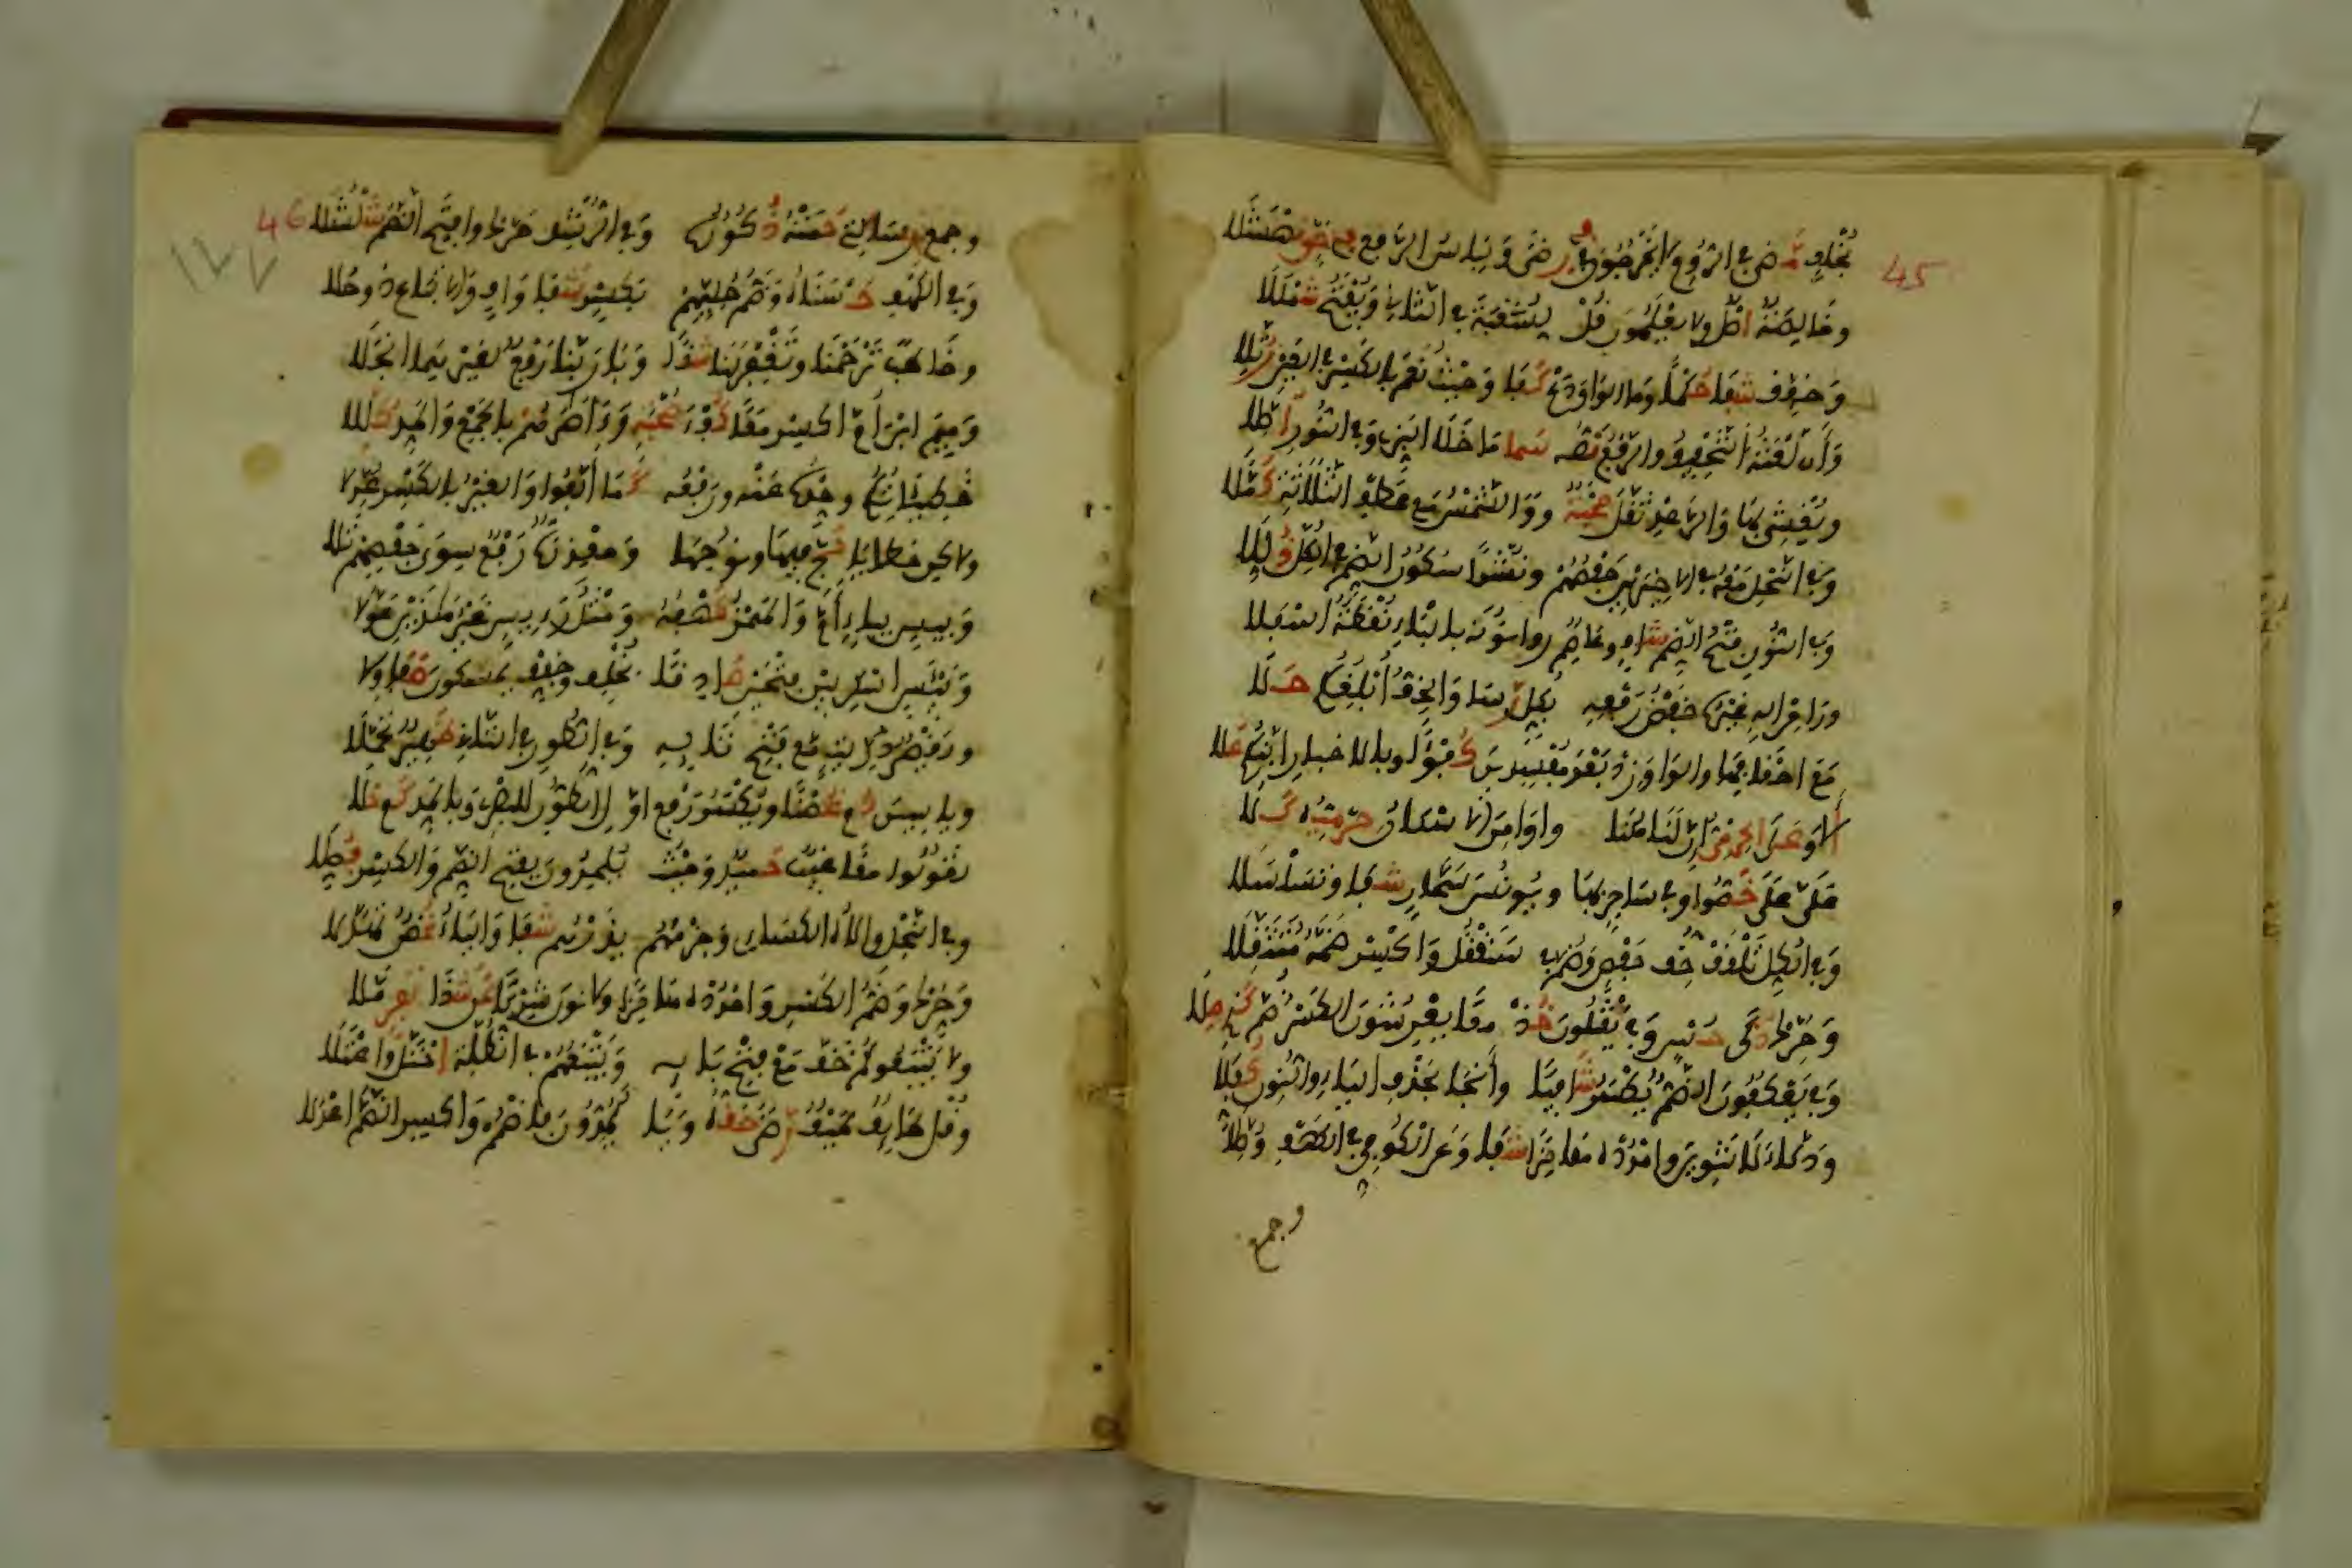 45
بخلف مضى في الروم لا يخرجون في رضى ولباس الرفع في حق نهشلا
وخالصة اصل ولا يعلمون قل لشعبة في الثاني ويفتح شمللا
وخفف شفا حكما وما الواو دع كفا وحيث نعم بالكسر في العين رتلا
وأن لعنة التخفيف والرفع نصه سما ما خلا البزي وفي النور أوصلا
ويغشي بها والرعد ثقل صحبة ووالشمس مع عطف الثلاثة كملا
وفي النحل معه في الاخيرين حفصهم ونشرا سكون الضم في الكل ذللا
وفي النون فتح الضم شاف وعاصم روا نونه بالباء نقطة اسفلا
ورا من اله غيره خفض رفعه بكل رسا والخف أبلغكم حلا
مع احقافها والواو زد بعد مفسدين كفؤا وبالاخبار إنكم علا
ألا وعلى الحرمي إن لنا هنا واو امن الاسكان حرميه كلا
علي على خصوا وفي ساحر بها ويونس سحار شفا وتسلسلا
وفي الكل تلقف خف حفص وضم في سنقتل واكسر ضمه متثقلا
وحرك ذكى حسن وفي يقتلون خذ معا يعرشون الكسر ضم كذي صلا
وفي يعكفون الضم يكسر شافيا وأنجا بحذف الياء والنون كفلا
ودكاء لا تنوين وامدده هامزا شفا وعن الكوفي في الكهف وصلا
وجمع
46
وجمع رسالاتي حمته ذكوره وفي الرشد حرك وافتح الضم شلشلا
وفي الكهف حسناه وضم حليهم بكسر شفا واف والاتباع ذو حلا
وخاطب ترحمنا وتغفر لنا شذا وبا ربنا رفع لغيرهما انجلا
وميم ابن أم اكسر معا كفؤ صحبة وآصارهم بالجمع والمد كللا
خطيئاتكم وحده عنه ورفعه كما ألفوا والغير بالكسر عدلا
ولاكن خطايا حج فيها ونوحها ومعذرة رفع سوى حفصهم تلا
وبيس بياء أم والهمز كهفه ومثل رئيس غير هذين عولا
وبيئس اسكن بين فتحين صادقا بخلف وخفف يمسكون صفا ولا
ويقصر ذريات مع فتح تائه وفي الطور في الثاني ظهير تحملا
وياسين دم غصنا ويكسر رفع أول الطور للبصري وبالمد كم حلا
يقولوا معا غيب حميد وحيث يلحدون بفتح الضم والكسر فصلا
وفي النحل والاه الكسائي وجزمهم يذرهم شفا والياء غصن تهدلا
وحرك وضم الكسر وامدده هامزا ولا نون شركا عن شذا نفر ملا
ولا يتبعوكم خف مع فتح بائه ويتبعهم في الظلة احتل واعتلا
وقل طائف طيف رضى حقه ويا يمدون فاضمم واكسر الضم اعدلا